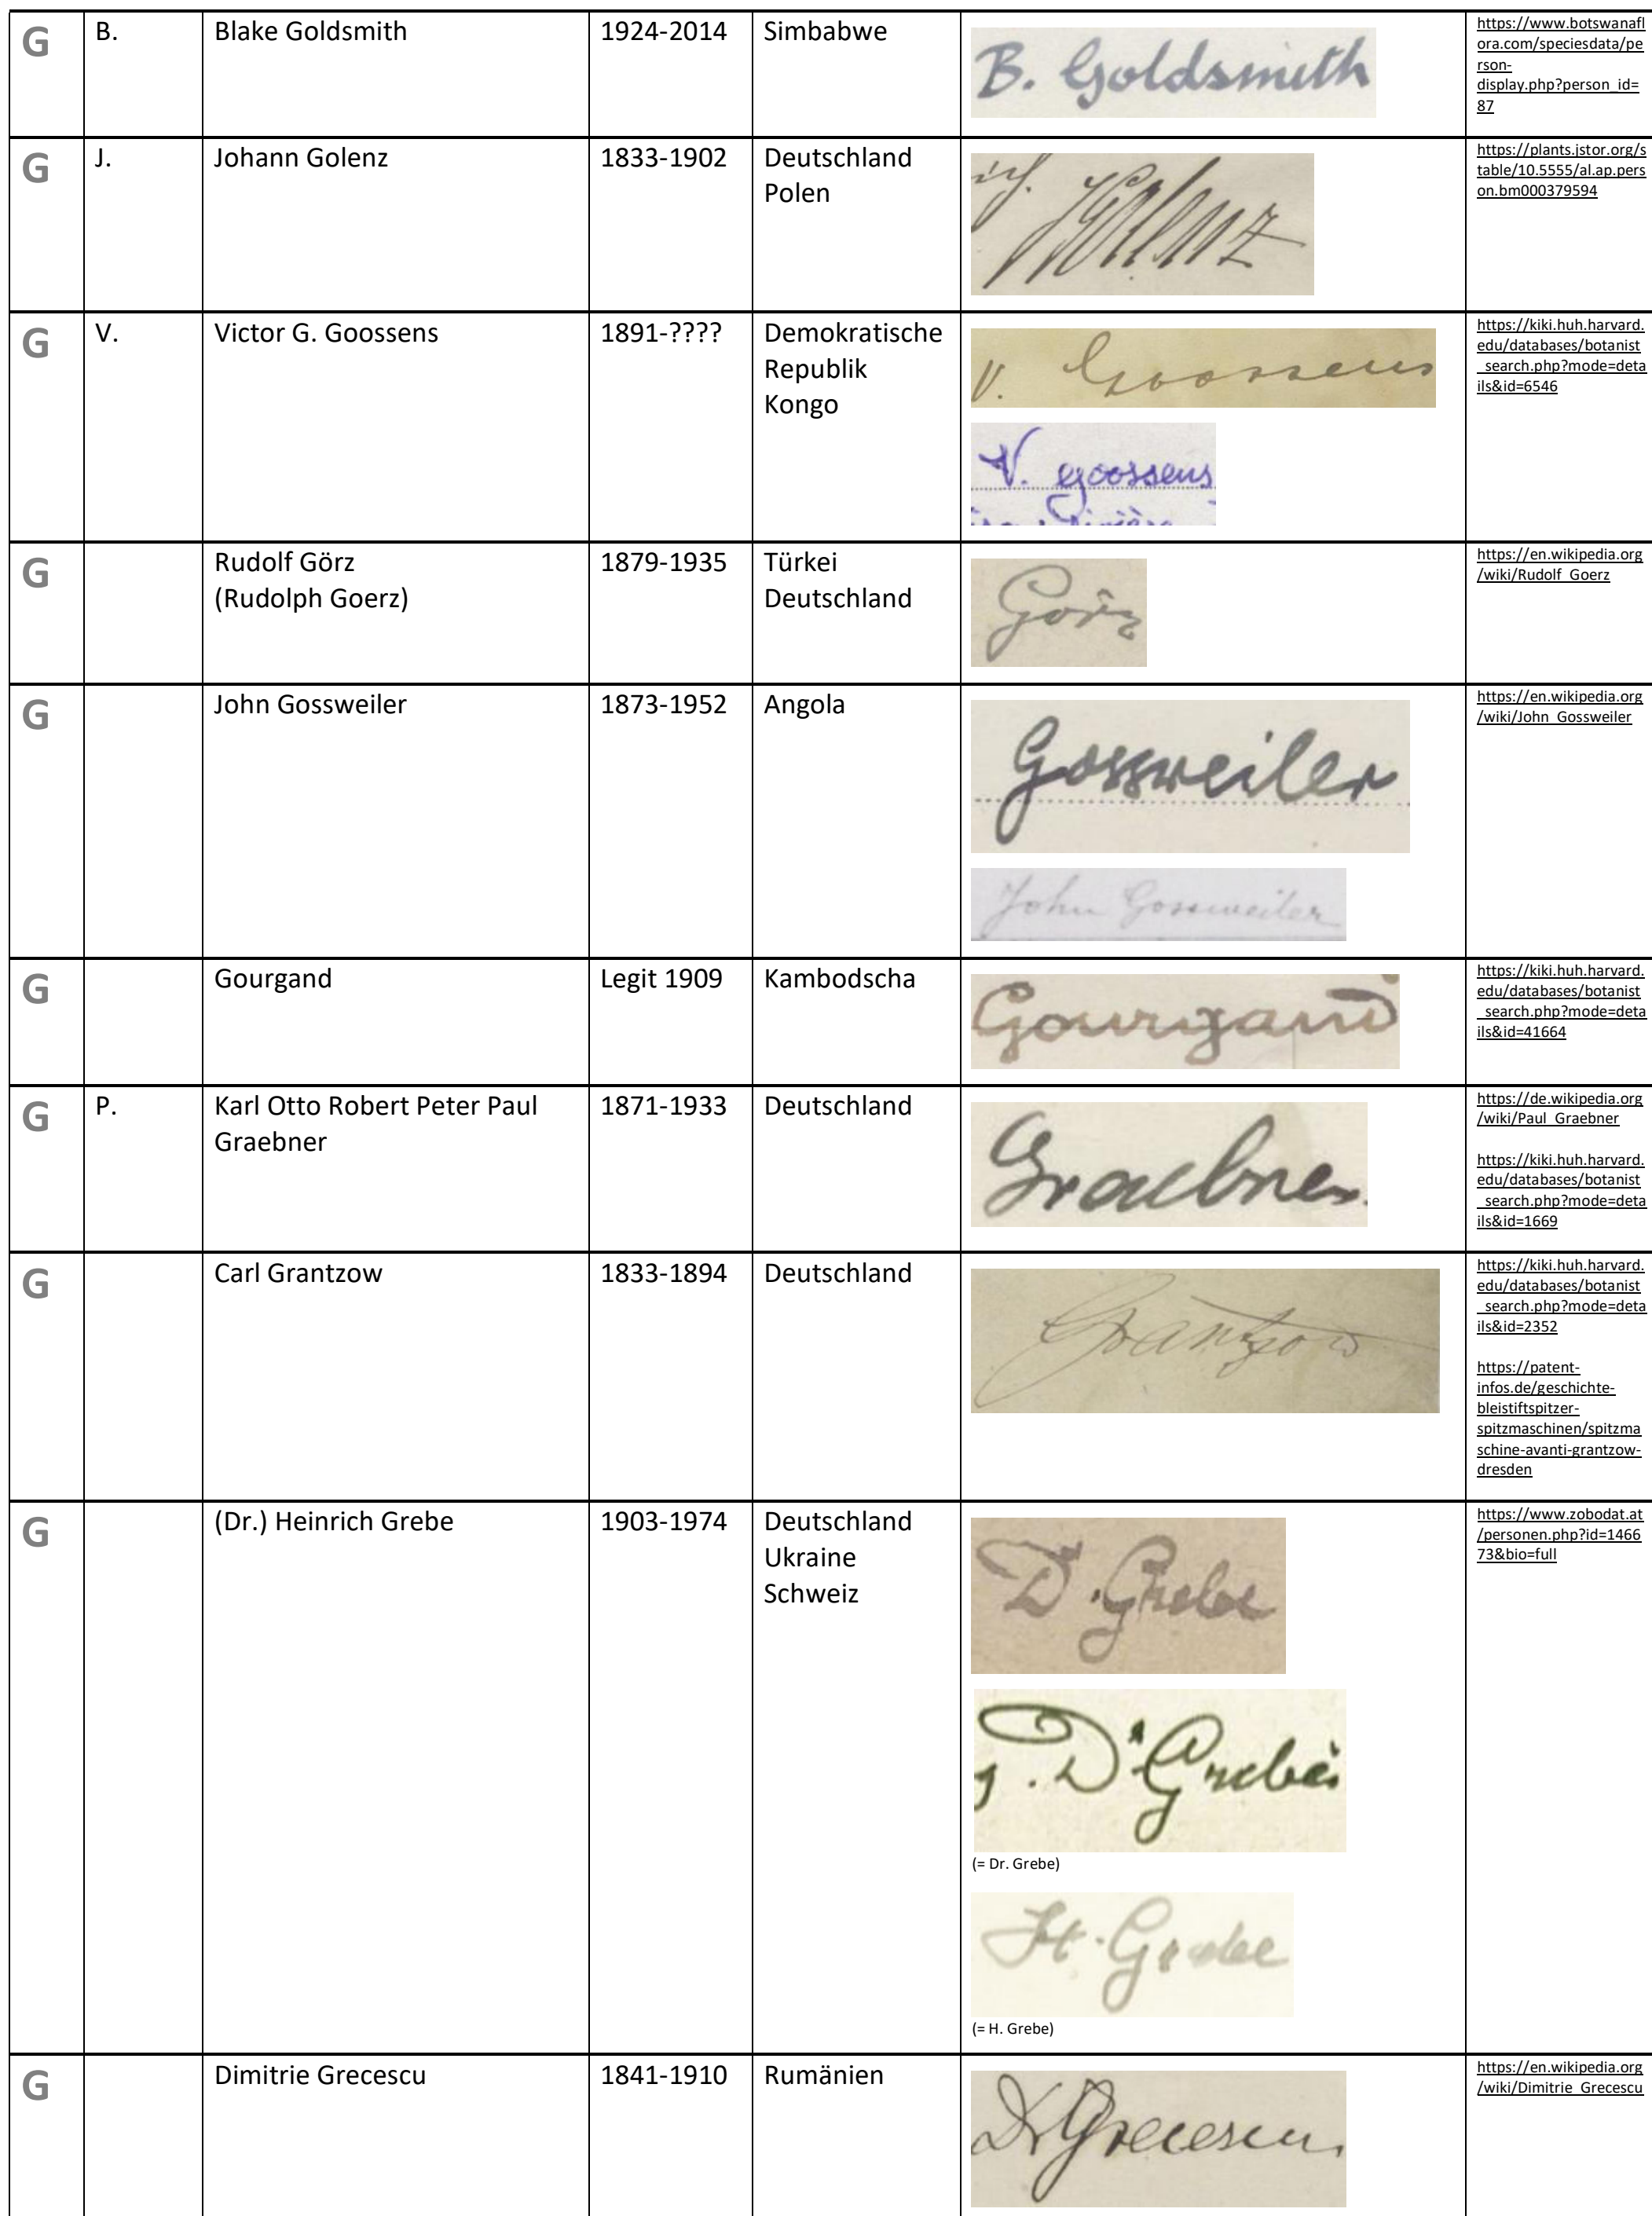 G B. Blake Goldsmith 1924-2014 Simbabwe B. Goldsmith https://www.botswanafl
ora.com/speciesdata/pe
rson-
display.php?person_id=
87
G J. Johann Golenz 1833-1902 Deutschland Golenz https://plants.jstor.org/s
Polen table/10.5555/al.ap.pers
on.bm000379594
G V. Victor G. Goossens 1891-???? Demokratische V. Goossens https://kiki.huh.harvard.
Republik edu/databases/botanist
Kongo _search.php?mode=deta
ils&id=6546
V. Goossens
G Rudolf Görz 1879-1935 Türkei Görz https://en.wikipedia.org
(Rudolph Goerz) Deutschland /wiki/Rudolf_Goerz
G John Gossweiler 1873-1952 Angola Gossweiler https://en.wikipedia.org
/wiki/John_Gossweiler
John Gossweiler
G Gourgand Legit 1909 Kambodscha Gourgand https://kiki.huh.harvard.
edu/databases/botanist
_search.php?mode=deta
ils&id=41664
G P. Karl Otto Robert Peter Paul 1871-1933 Deutschland Graebner https://de.wikipedia.org
Graebner /wiki/Paul_Graebner
https://kiki.huh.harvard.
edu/databases/botanist
_search.php?mode=deta
ils&id=1669
G Carl Grantzow 1833-1894 Deutschland Grantzow https://kiki.huh.harvard.
edu/databases/botanist
_search.php?mode=deta
ils&id=2352
https://patent-
infos.de/geschichte-
bleistiftspitzer-
spitzmaschinen/spitzma
schine-avanti-grantzow-
dresden
G (Dr.) Heinrich Grebe 1903-1974 Deutschland Dr. Grebe https://www.zobodat.at
Ukraine /personen.php?id=1466
Schweiz 73&bio=full
Dr Grebe
(= Dr. Grebe)
H. Grebe
(= H. Grebe)
G Dimitrie Grecescu 1841-1910 Rumänien Dr Grecescu https://en.wikipedia.org
/wiki/Dimitrie_Grecescu